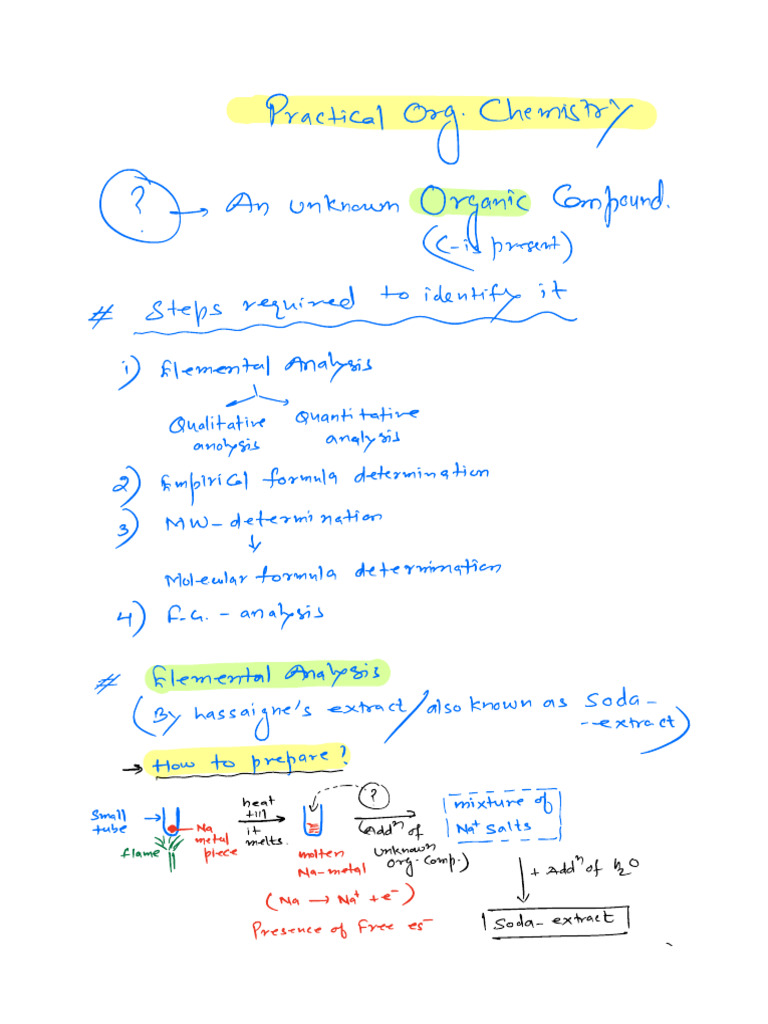 Practical Org. Chemistry
? → An unknown Organic Compound.
(C-is present)
# Steps required to identify it
1) Elemental Analysis
Qualitative analysis
Quantitative analysis
2) Empirical formula determination
3) MW-determination
↓
Molecular formula determination
4) F.G. - analysis
# Elemental Analysis
(By Lassaigne's extract/also known as Soda-
--extract)
→ How to prepare?
Small tube →
Na metal piece
flame
heat till it melts.
molten Na-metal
?
(Addⁿ of unknown org. comp.)
mixture of Na⁺ Salts
+ Addⁿ of H₂O
(Na → Na⁺ + e⁻)
Presence of Free es⁻
Soda-extract